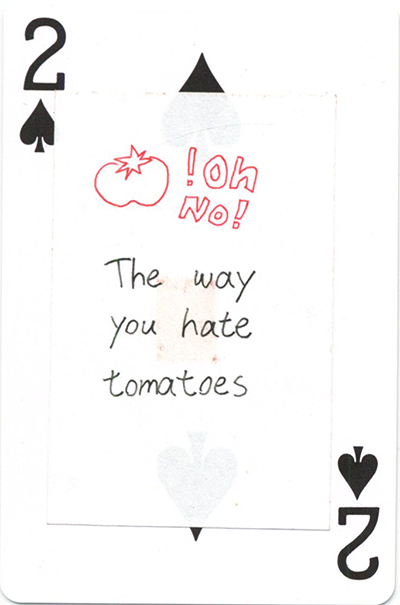 2
!Oh
No!
The way
you hate
tomatoes
2